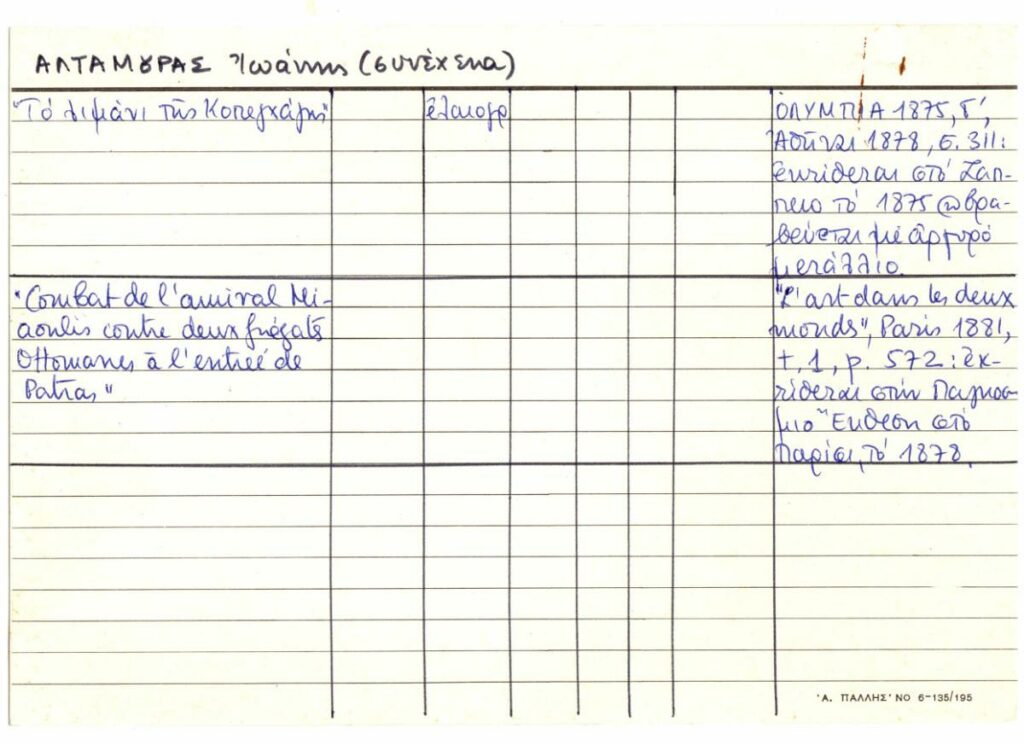 ΑΛΤΑΜΟΥΡΑΣ Ἰωάννης (συνέχεια)
"Τό λιμάνι τῆς Κοπεγχάγης"
ἐλαιογρ
ΟΛΥΜΠΙΑ 1875, Γ',
Ἀθῆναι 1878, σ. 311:
ἐκτίθεται στό Ζάπ-
πειο τό 1875 βρα-
βεύεται μέ ἀργυρό
μετάλλιο.
"Combat de l'amiral Mi-
aoulis contre deux frégats
Ottomanes à l'entreé de
Patras"
"L'art dans les deux
monds", Paris 1881,
t, 1, p. 572: ἐκ-
τίθεται στήν Παγκόσ-
μιο Ἔκθεση στό
Παρίσι, τό 1878.
'Α. ΠΑΛΛΗΣ' ΝΟ 6-135/195